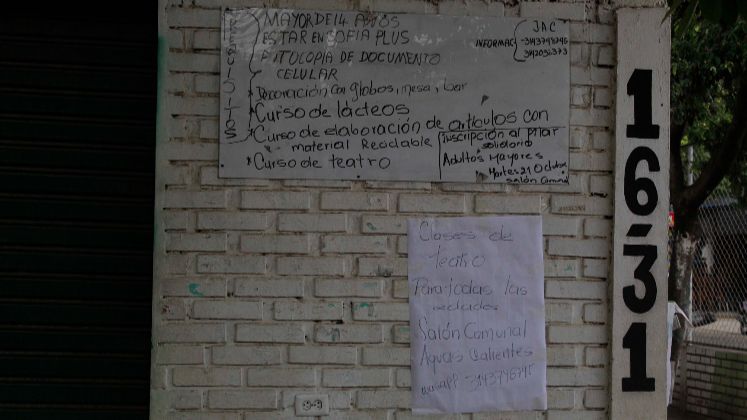 Requicitos
MAYOR DE 14 AÑOS
ESTAR EN SOFIA PLUS
FOTOCOPIA DE DOCUMENTO
CELULAR
* Decoración con globos, mesa, bar
* Curso de lácteos
* Curso de elaboración de artículos con
material Reciclable
* Curso de teatro
JAC
INFORMAC
Inscripción al pilar
solidario
Adultos Mayores
Martes 21 Octubre
salón Comunal
Clases de
teatro
Para todas las
edades
Salón Comunal
Aguas Calientes
16-31